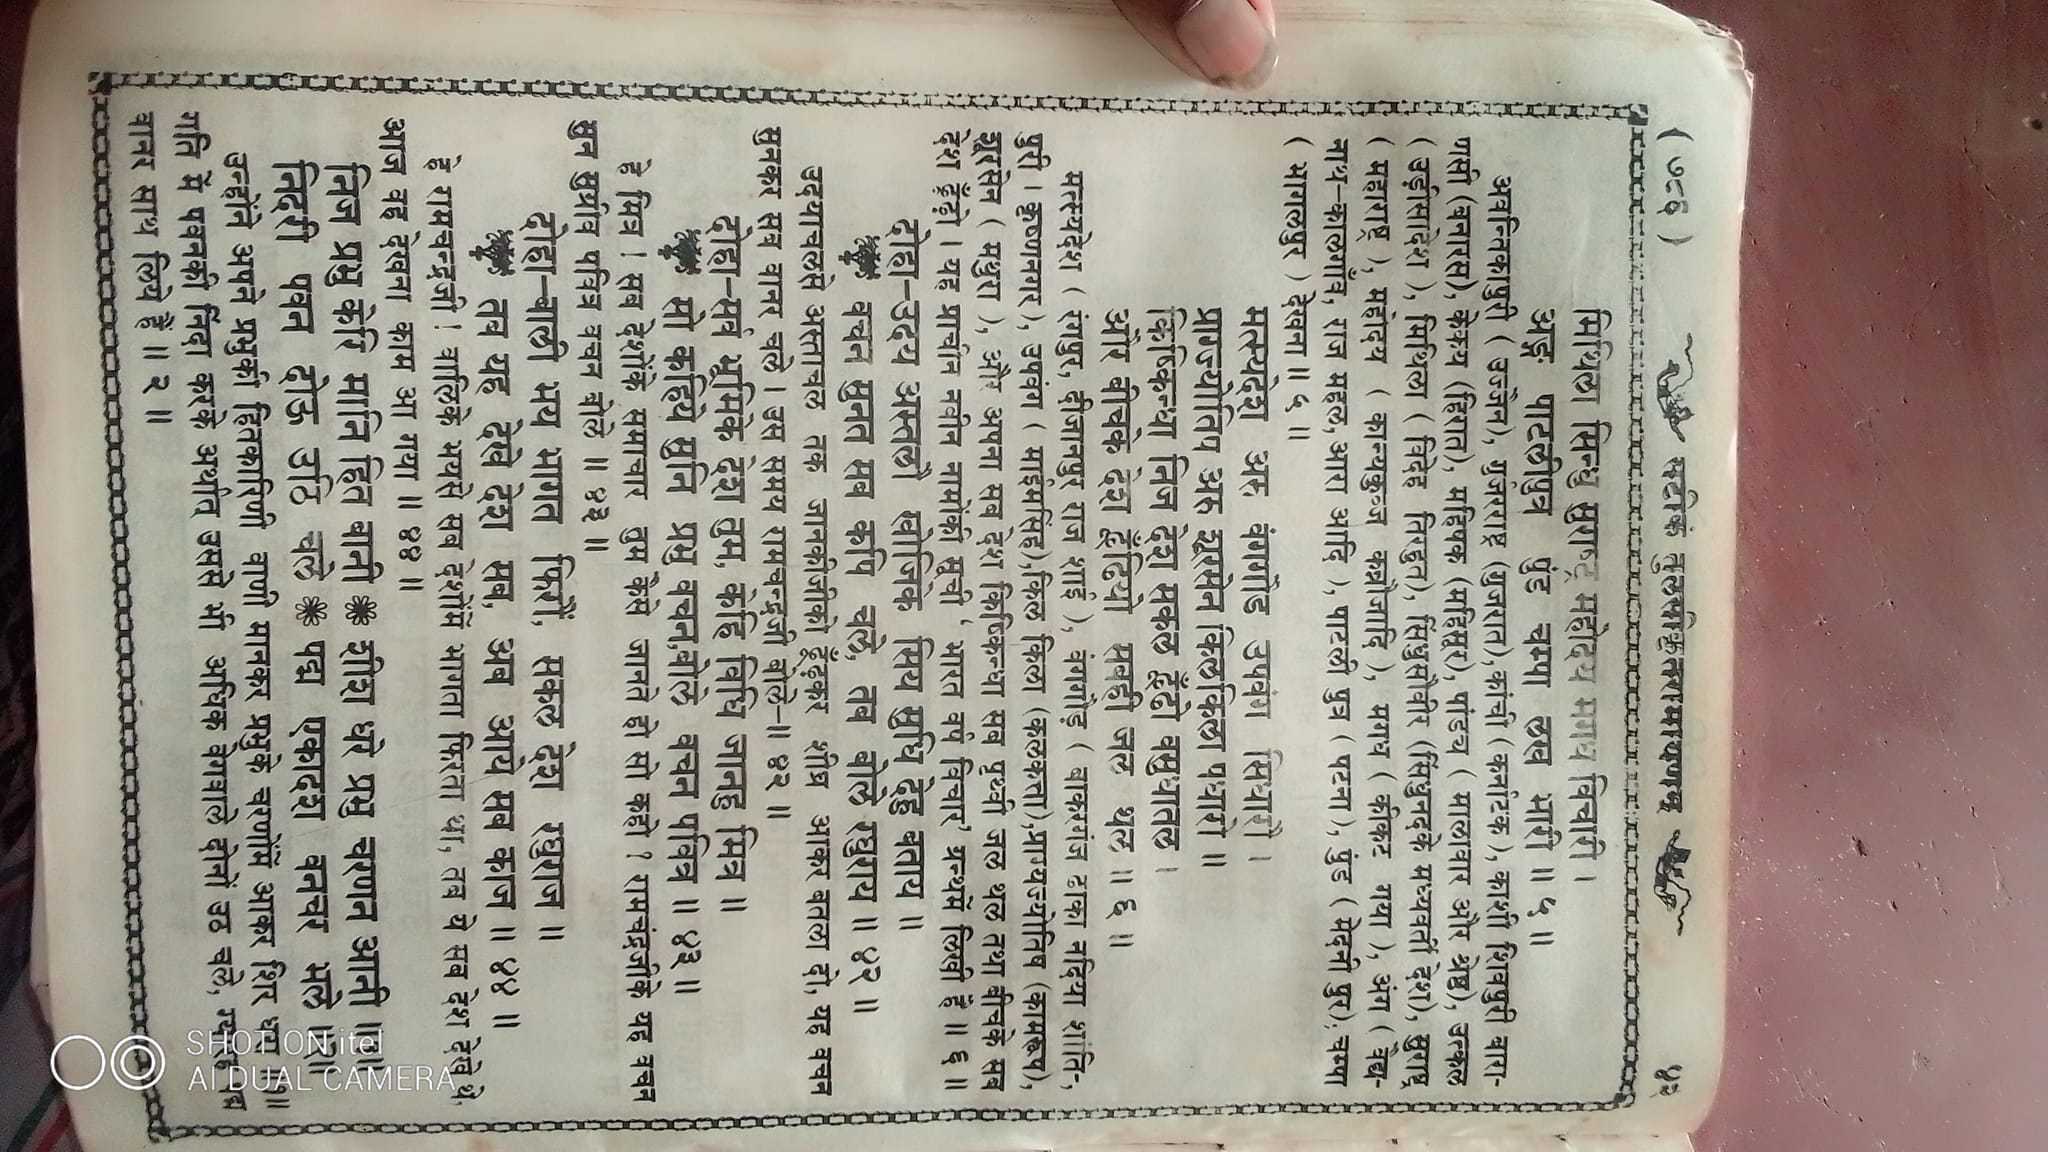 ( ७८६ ) सटीकं तुलसीकृतरामायणम् ५२
मिथिला सिन्धु सुराष्ट्र महोदय मगध विचारी ।
अङ्ग पाटलीपुत्र पुंड चम्पा लख भारी ॥ ६ ॥
अवन्तिकापुरी ( उज्जैन), गुजरराष्ट्र (गुजरात),कांची ( कर्नाटक ), काशी शिवपुरी वारा-
णसी (बनारस), केकय (हिरात), महिषक (महिसुर), पांड्य ( मालावार और श्रेष्ठ), उत्कल
( उड़ीसादेश ), मिथिला ( विदेह तिरहुत), सिंधुसौवीर (सिंधुनदके मध्यवर्ती देश), सुराष्ट्र
( महाराष्ट्र ), महोदय ( कान्यकुब्ज कन्नौजादि ), मगध ( कीकट गया ), अंग ( वैद्य-
नाथ-कालगाँव, राज महल, आरा आदि ), पाटली पुत्र ( पटना ), पुंड ( मेदनी पुर), चम्पा
( भागलपुर ) देखना ॥ ६ ॥
मत्स्यदेश अरु बंगगौड उपवंग सिधारो ।
प्राग्ज्योतिप अरु शूरसेन किलकिला पधारो ॥
किष्किन्धा निज देश सकल ढूँढो वसुधातल ।
और वीचके देश ढूँढियो सवही जल थल ॥ ६ ॥
मत्स्यदेश ( रंगपुर, दीनाजपुर राज शाई ), वंगगौड़ ( वाकरगंज ढाका नदिया शांति-,
पुरी । कृष्णनगर), उपवंग ( माईमसिंह),किल किला (कलकत्ता),प्राग्यज्योतिष (कामरूप),
शूरसेन ( मथुरा ), और अपना सब देश किष्किन्धा सब पृथ्वी जल थल तथा वीचके सब
देश ढूँड़ो । यह प्राचीन नवीन नामोंकी सूची ‘ भारत वर्ष विचार’ ग्रन्थमें लिखी है ॥ ६ ॥
दोहा-उदय अस्तलौ खोजिकै सिय सुधि देहु बताय ॥
वचन सुनत सब कपि चले, तब बोले रघुराय ॥ ४२ ॥
उदयाचलसे अस्ताचल तक जानकीजीको ढूँढ़कर शीघ्र आकर बतला दो, यह वचन
सुनकर सब वानर चले । उस समय रामचन्द्रजी बोले-॥ ४२ ॥
दोहा-सर्व भूमिके देश तुम, केहि विधि जानहु मित्र ॥
सो कहिये सुनि प्रभु वचन,बोले वचन पवित्र ॥ ४३ ॥
हे मित्र ! सब देशोंके समाचार तुम कैसे जानते हो सो कहो ? रामचंद्रजीके यह वचन
सुन सुग्रीव पवित्र वचन बोले ॥ ४३ ॥
दोहा-वाली भय भागत फिरों, सकल देश रघुराज ॥
तब यह देखे देश सब, अब आये सब काज ॥ ४४ ॥
हे रामचन्द्रजी ! वालिके भयसे सब देशोंमें भागता फिरता था, तब ये सब देश देखे थे,
आज वह देखना काम आ गया ॥ ४४ ॥
निज प्रभु केरि मानि हित बानी ❋ शीश धरे प्रभु चरणन आनी ॥१॥
निदरी पवन दोऊ उठि चले ❋ पद्म एकादश वनचर भले ॥२॥
उन्होंने अपने प्रभुकी हितकारिणी वाणी मानकर प्रभुके चरणोंमें आकर शिर धरा ॥१॥
गति में पवनकी निंदा करके अर्थात उससे भी अधिक वेगवाले दोनों उठ चले, ग्यारह पद्म
वानर साथ लिये हैं ॥ २ ॥
SHOT ON itel
AI DUAL CAMERA